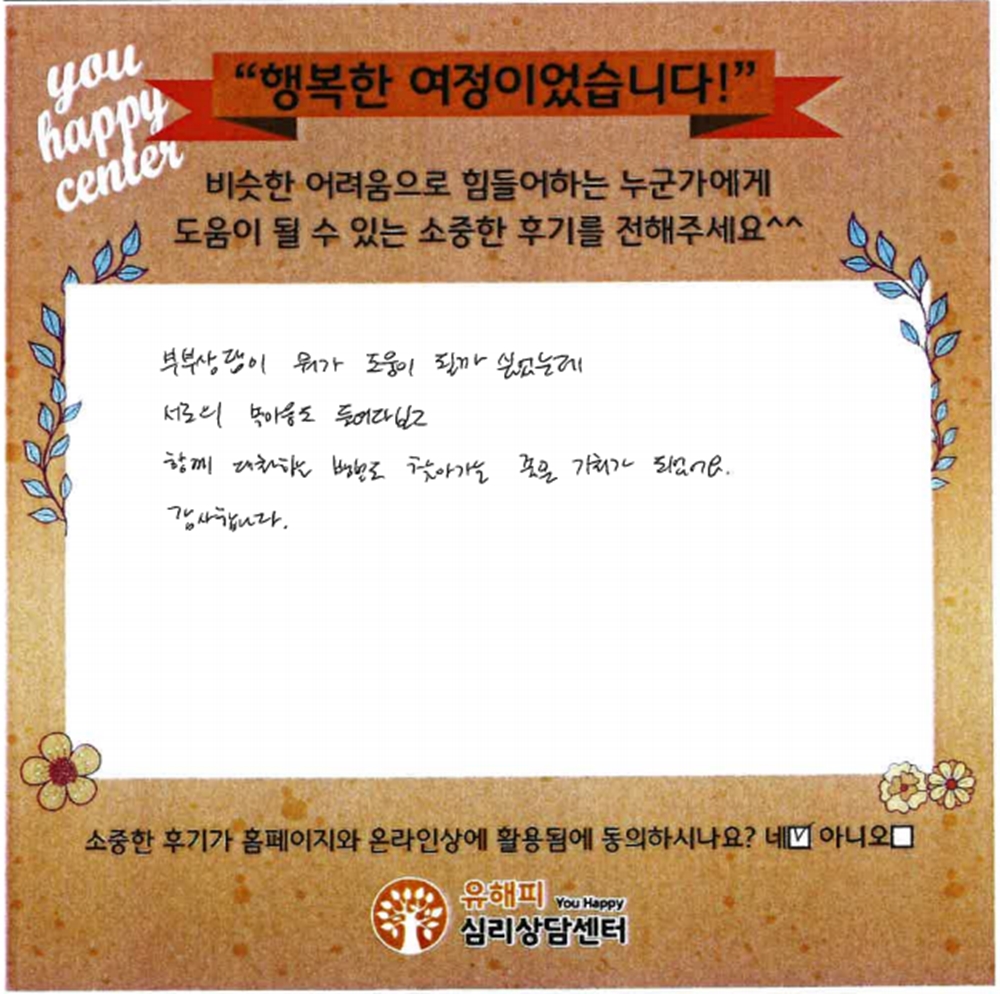 you
happy
center
“행복한 여정이었습니다!”
비슷한 어려움으로 힘들어하는 누군가에게
도움이 될 수 있는 소중한 후기를 전해주세요^^
부부상담이 뭐가 도움이 될까 싶었는데
서로의 속마음도 들여다보고
함께 대화하는 방법도 찾아가는 좋은 가치가 되었어요.
감사합니다.
소중한 후기가 홈페이지와 온라인상에 활용됨에 동의하시나요? 네☑ 아니오☐
유해피 You Happy
심리상담센터